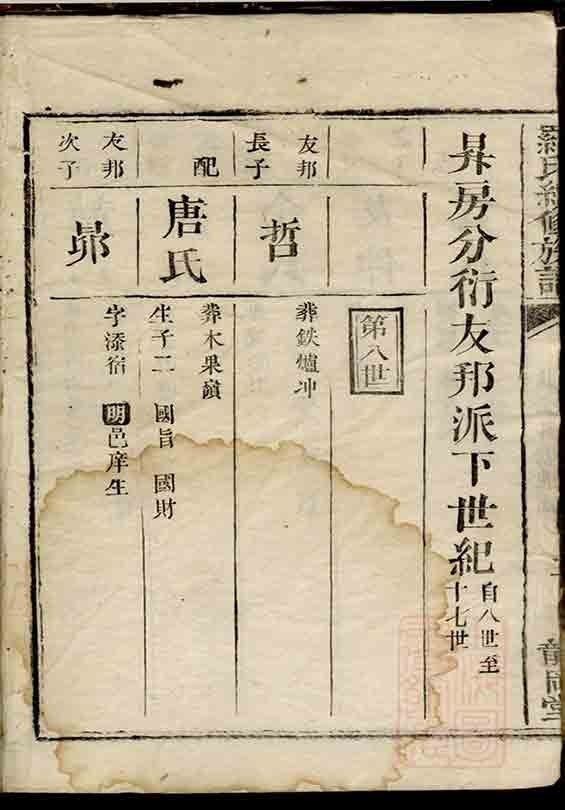 羅氏續修族譜
昇房分衍友邦派下世紀 自八世至十七世
第八世
友邦長子
哲
葬鉄爐冲
配
唐氏
葬木果嶺
生子二 國旨 國財
友邦次子
昴
字添宿 明邑庠生